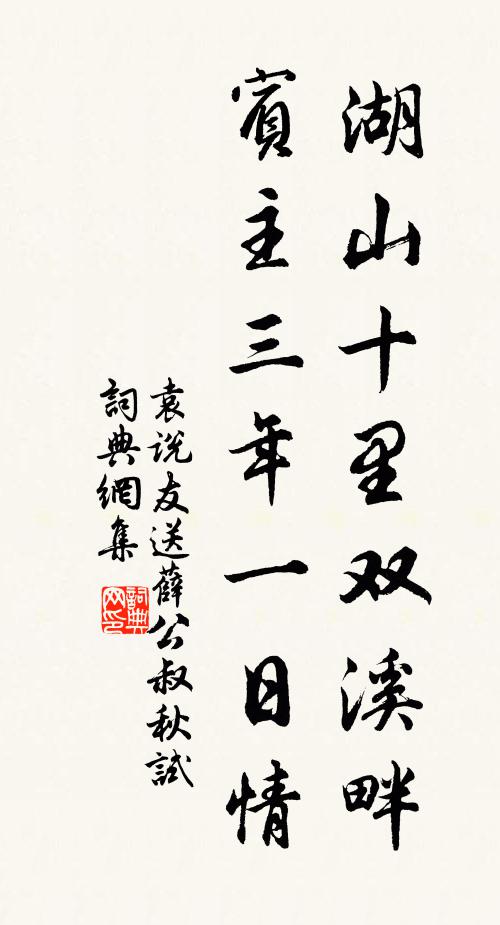 湖山十里双溪畔
賓主三年一日情
袁说友送薛公叔秋試
詞典網集
詞典
网印